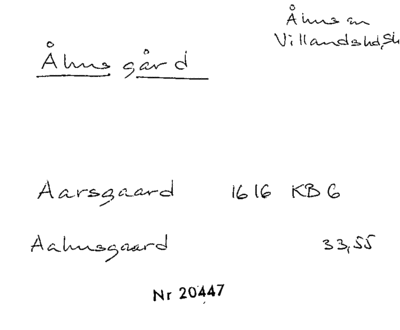 Åhus sn
Villandshd, Sk
Åhus gård
Aarsgaard 1616 KB 6
Aahusgaard 33,55
Nr 20447